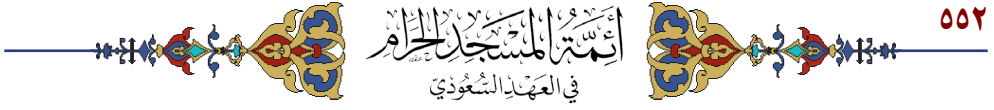 ٥٥٢
أَئِمَّةُ المَسْجِدِ الحَرَامِ
فِي العَهْدِ السُّعُودِيّ